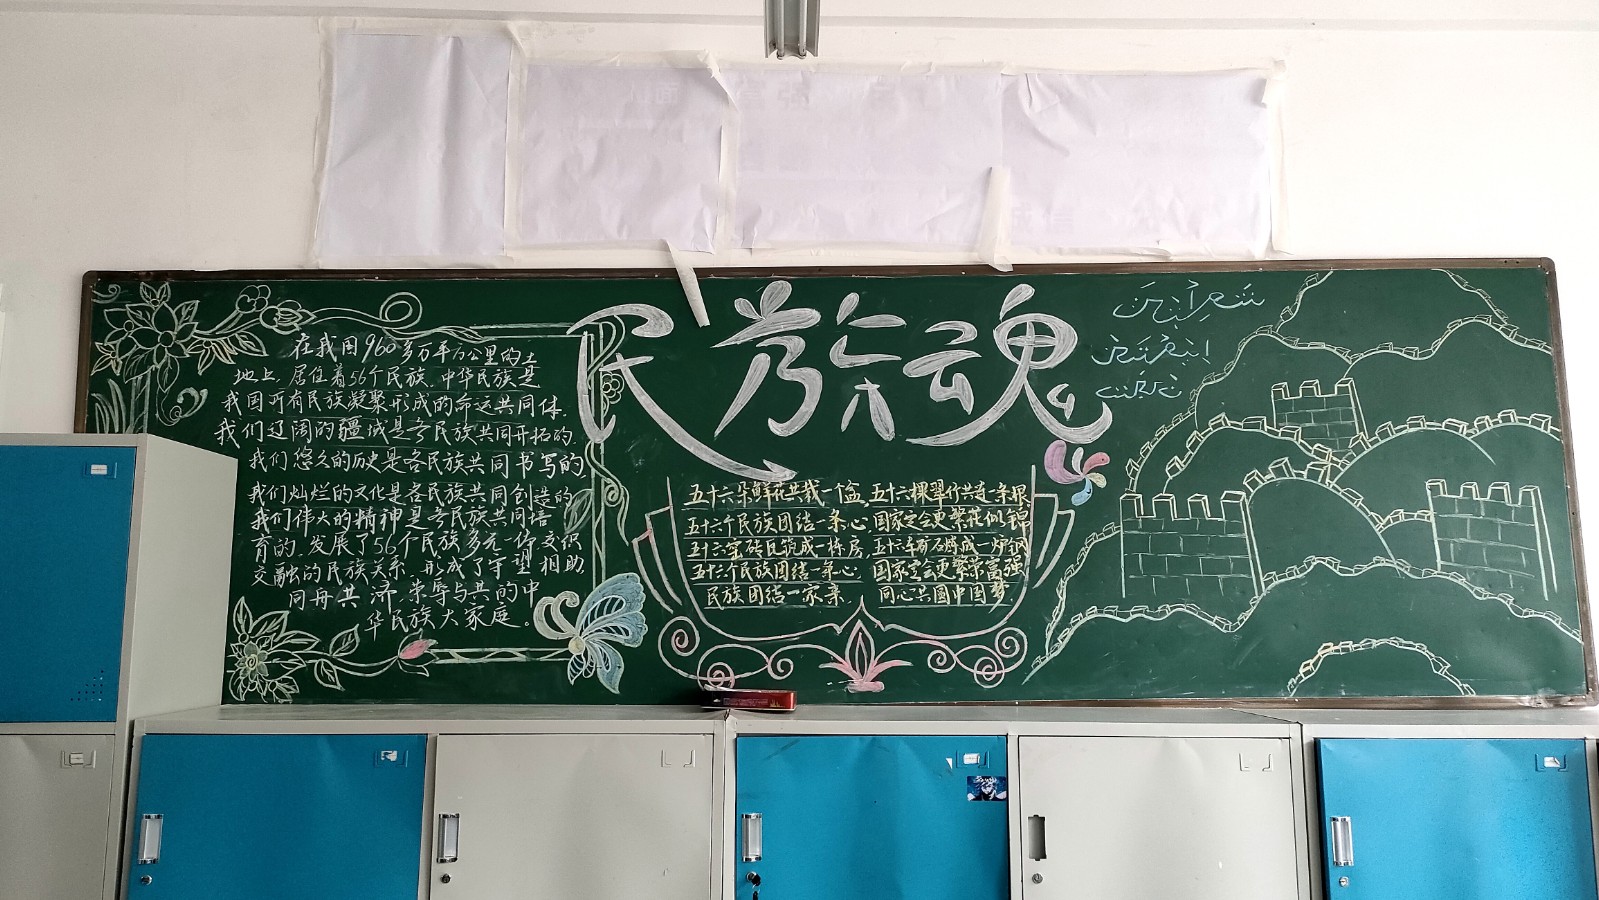 民族魂
在我国960多万平方公里的土
地上,居住着56个民族.中华民族是
我国所有民族凝聚形成的命运共同体.
我们辽阔的疆域是各民族共同开拓的.
我们悠久的历史是各民族共同书写的,
我们灿烂的文化是各民族共同创造的
我们伟大的精神是各民族共同培
育的.发展了56个民族多元一体交织
交融的民族关系.形成了守望相助
同舟共济.荣辱与共的中
华民族大家庭。
五十六朵鲜花共栽一个盆,五十六棵翠竹共连一条根
五十六个民族团结一条心.国家定会更繁花似锦
五十六窑砖瓦筑成一栋房.五十六车矿石炼成一炉钢
五十六个民族团结一条心.国家定会更繁荣富强
民族团结一家亲.同心共圆中国梦.